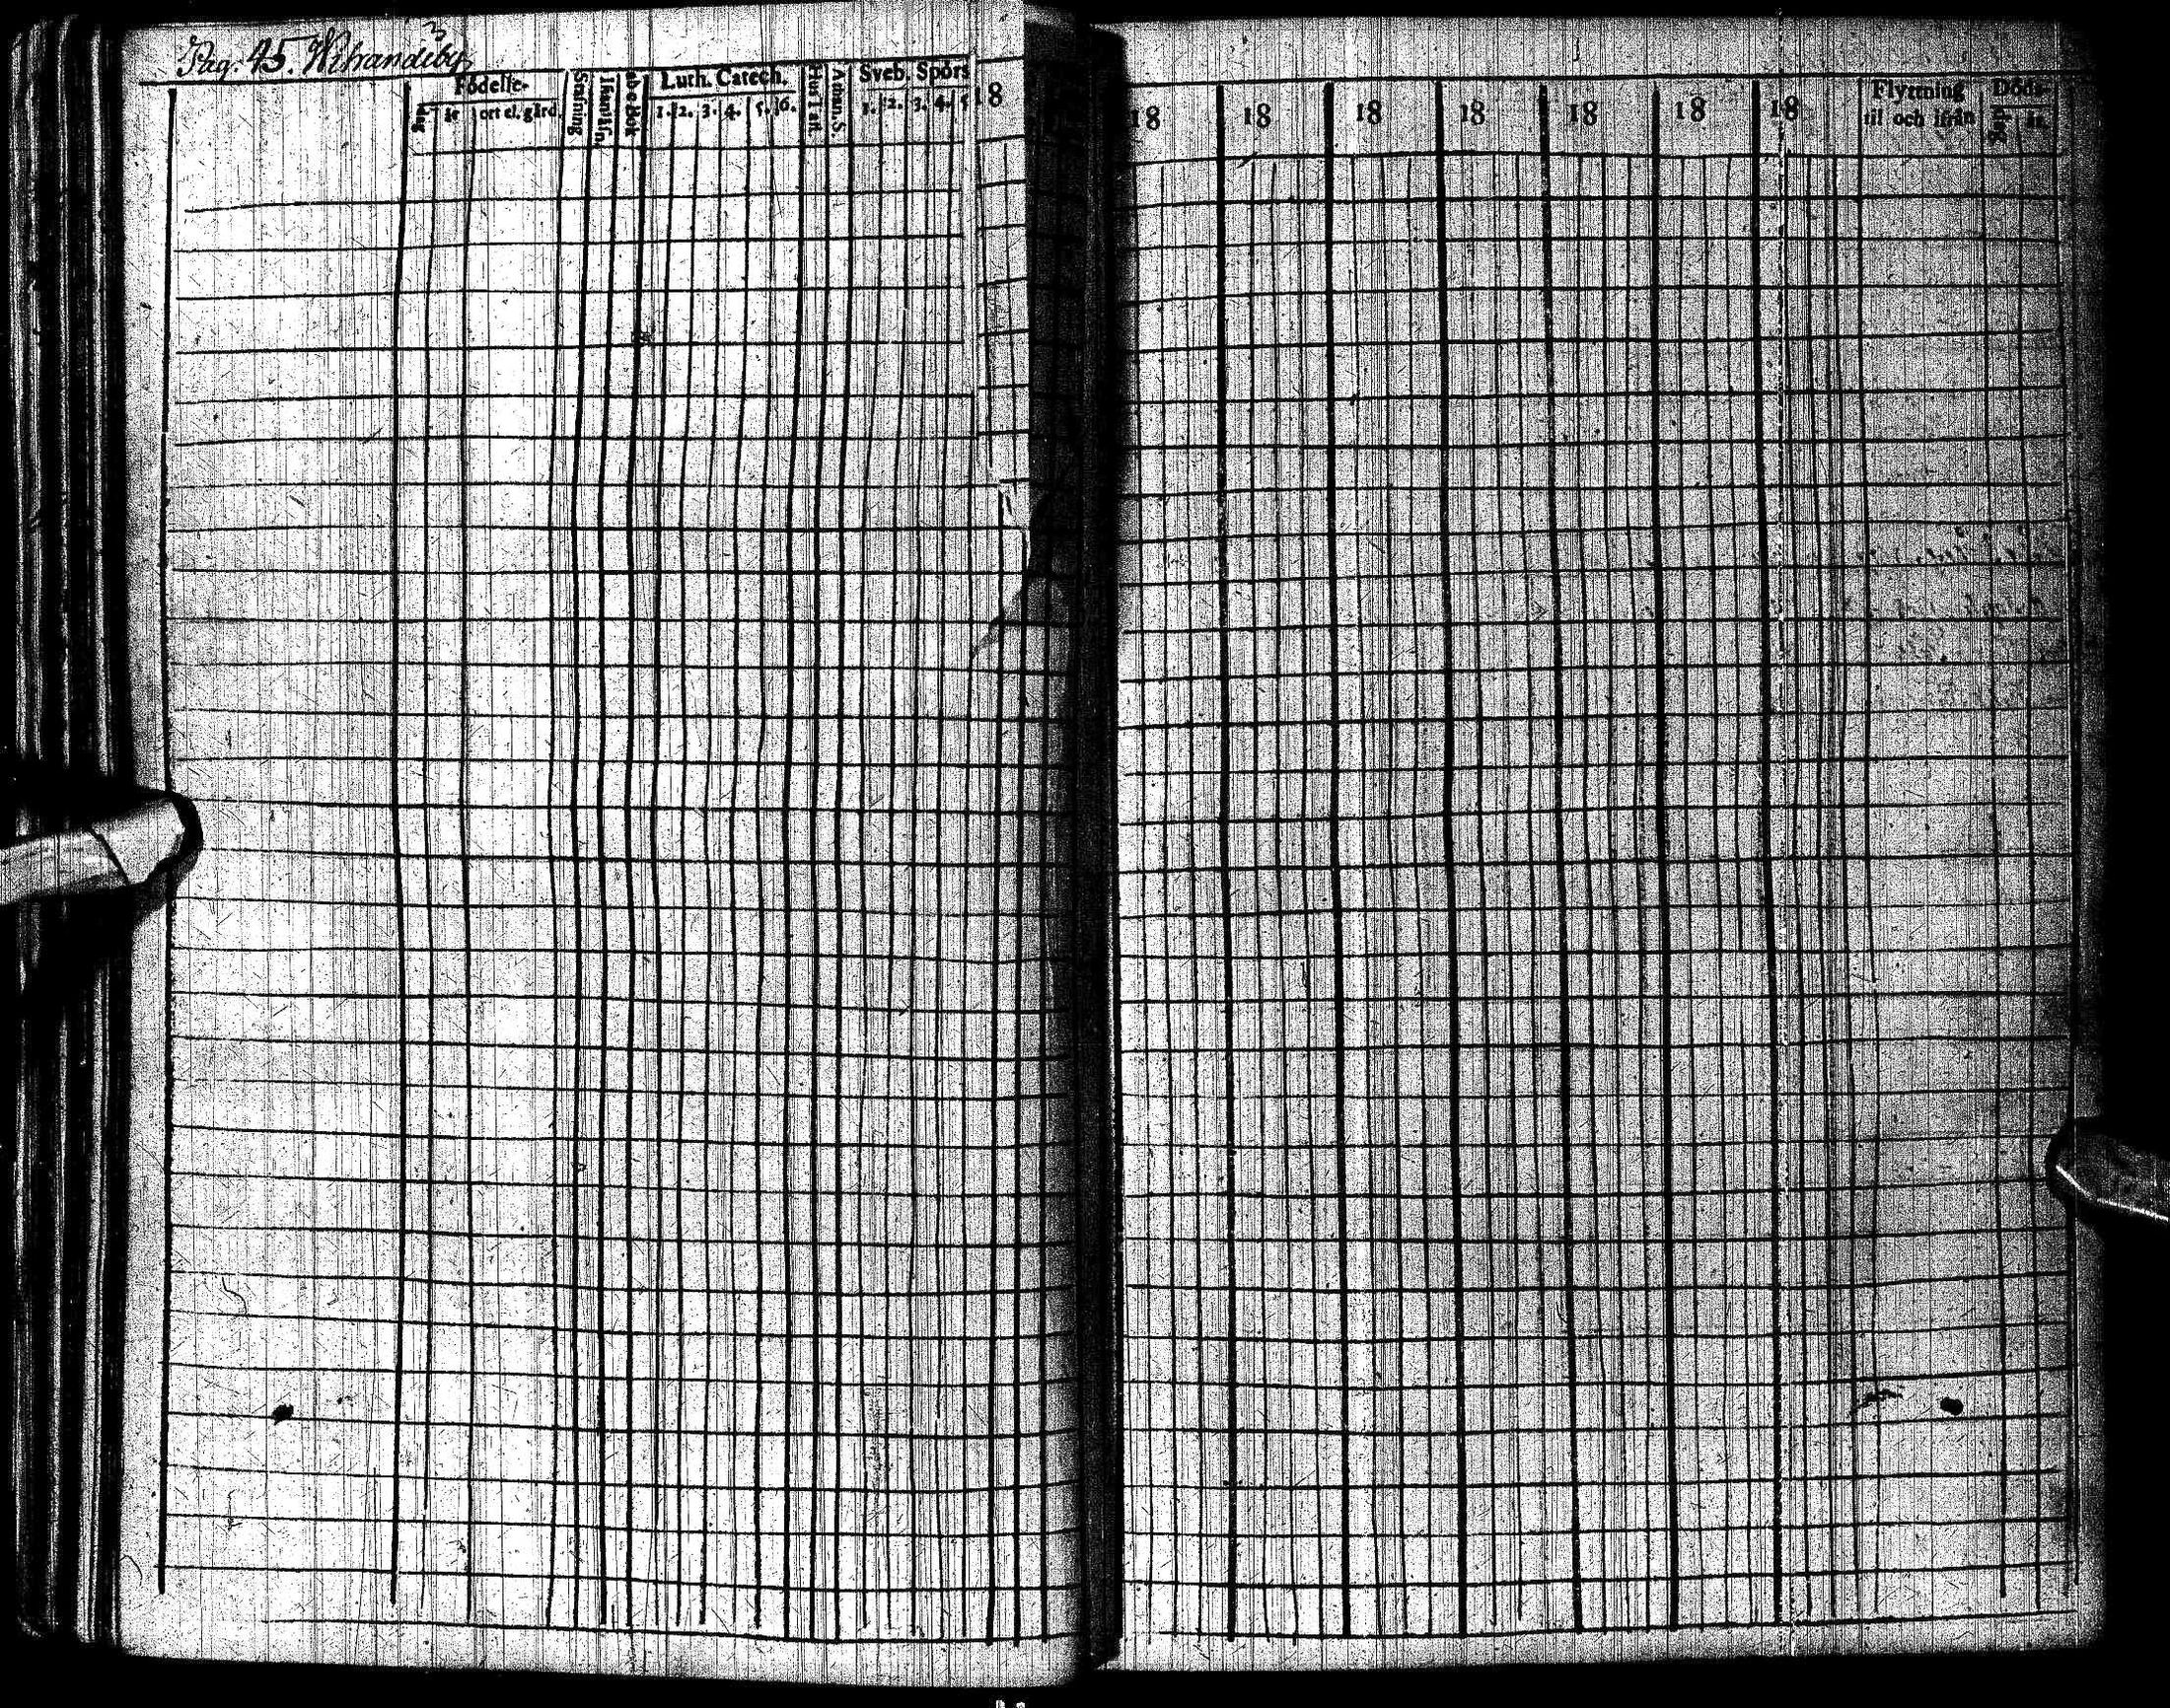 Pag. 45. Wihandiby
Födelse-
dag år ort el. gård.
Stafning
Innanläsn.
ab c Bok
Luth. Catech.
1. 2. 3. 4. 5. 6.
Hus Taf.
Athan. S.
Sveb. Spörs
1. 2. 3. 4. 5
18
18 18 18 18 18 18 18
Flyttning
til och ifrån
Döds-
dag år.